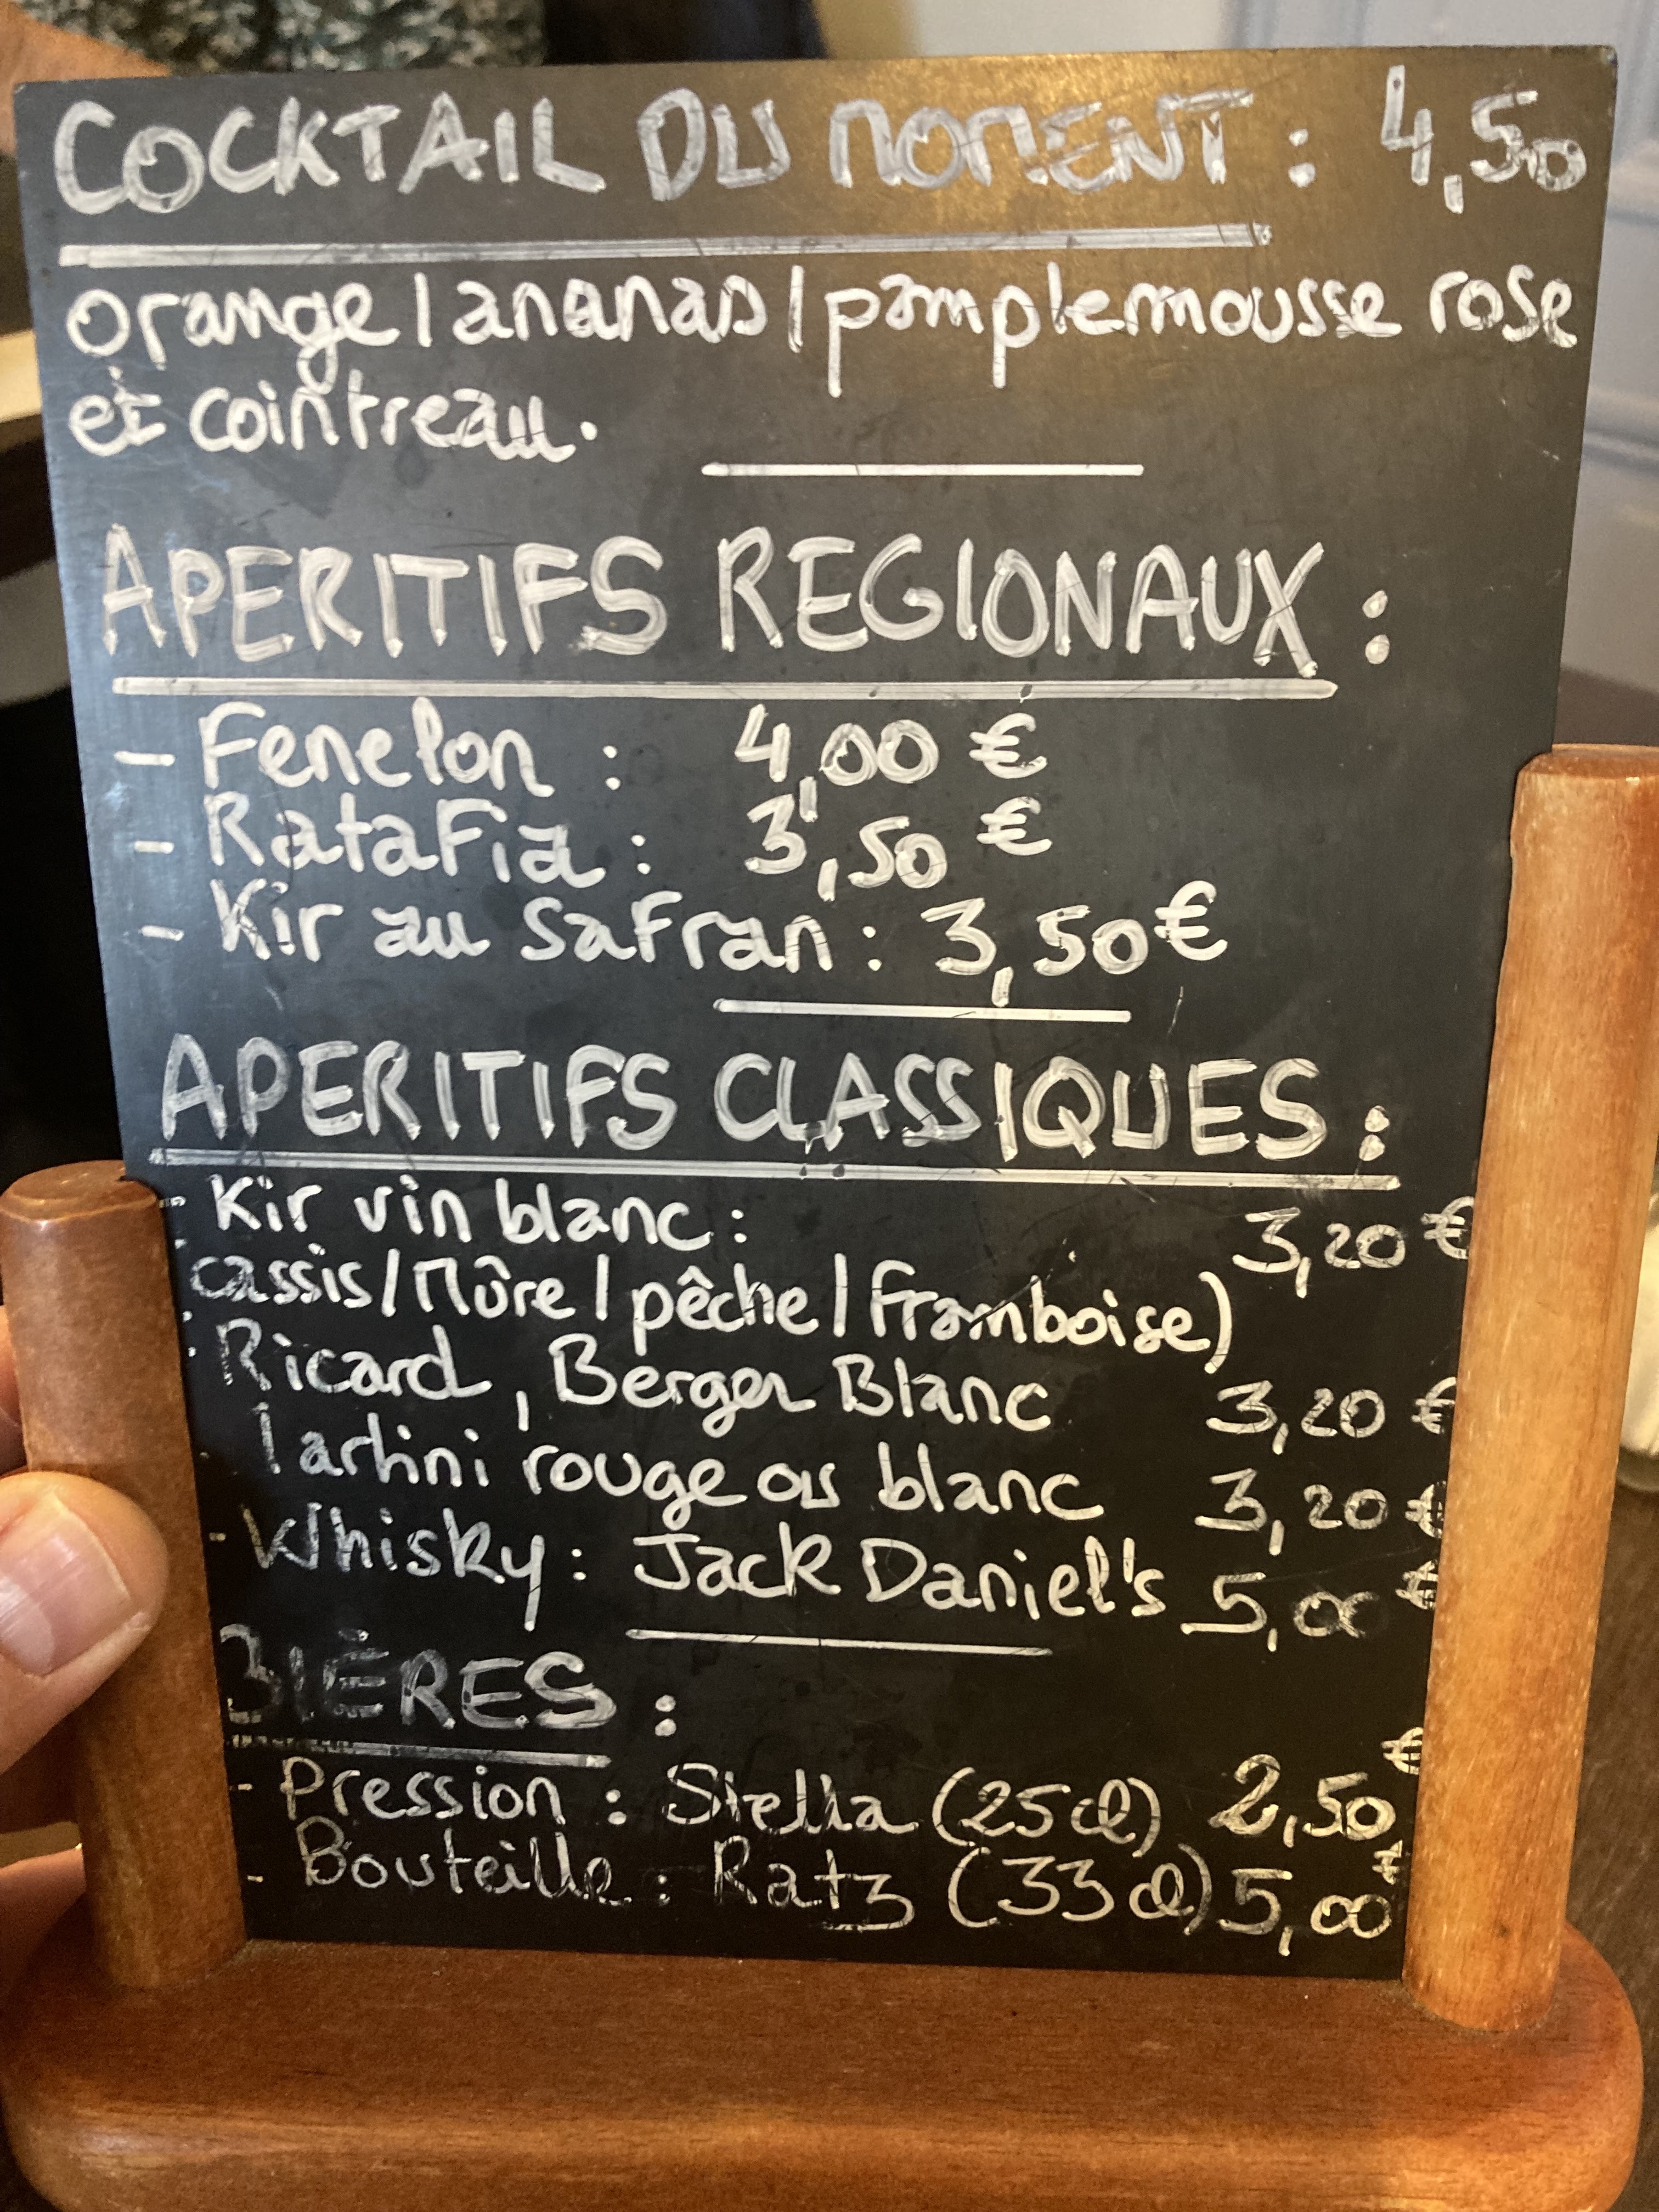 COCKTAIL DU MOMENT : 4,50
orange / ananas / pamplemousse rose
et cointreau.
APERITIFS REGIONAUX :
- Fenelon : 4,00 €
- Ratafia : 3,50 €
- Kir au safran : 3,50 €
APERITIFS CLASSIQUES :
- Kir vin blanc : 3,20 €
cassis / Mûre / pêche / framboise)
Ricard, Berger Blanc 3,20 €
Martini rouge ou blanc 3,20 €
- Whisky : Jack Daniel's 5,00 €
BIÈRES :
- Pression : Stella (25 cl) 2,50 €
- Bouteille : Ratz (33 cl) 5,00 €